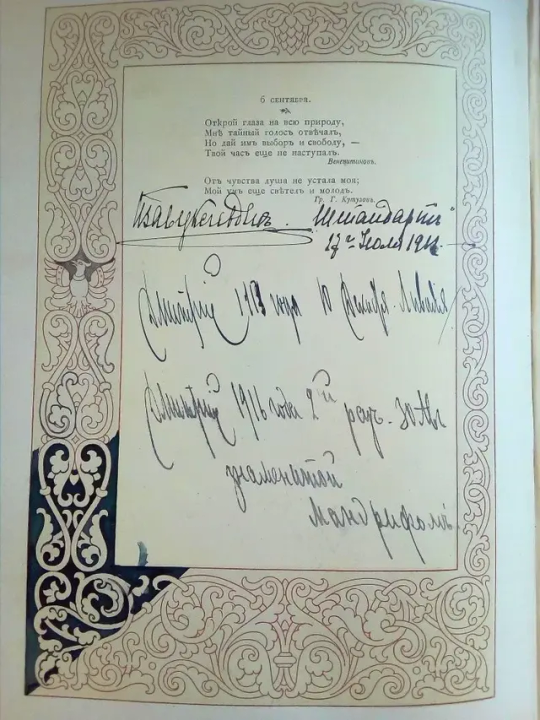 6 сентября.
Открой глаза на всю природу,
Мнѣ тайный голосъ отвѣчалъ,
Но дай имъ выборъ и свободу, —
Твой часъ еще не наступалъ.
Веневитиновъ.
Отъ чувства душа не устала моя;
Мой умъ еще свѣтелъ и молодъ.
Гр. Г. Кутузовъ.
„Штандартъ"
17го Іюля 191
Дмитрій 1913 года 10 Ливадія
Дмитрій 1916 года 2й разъ
знаменитой